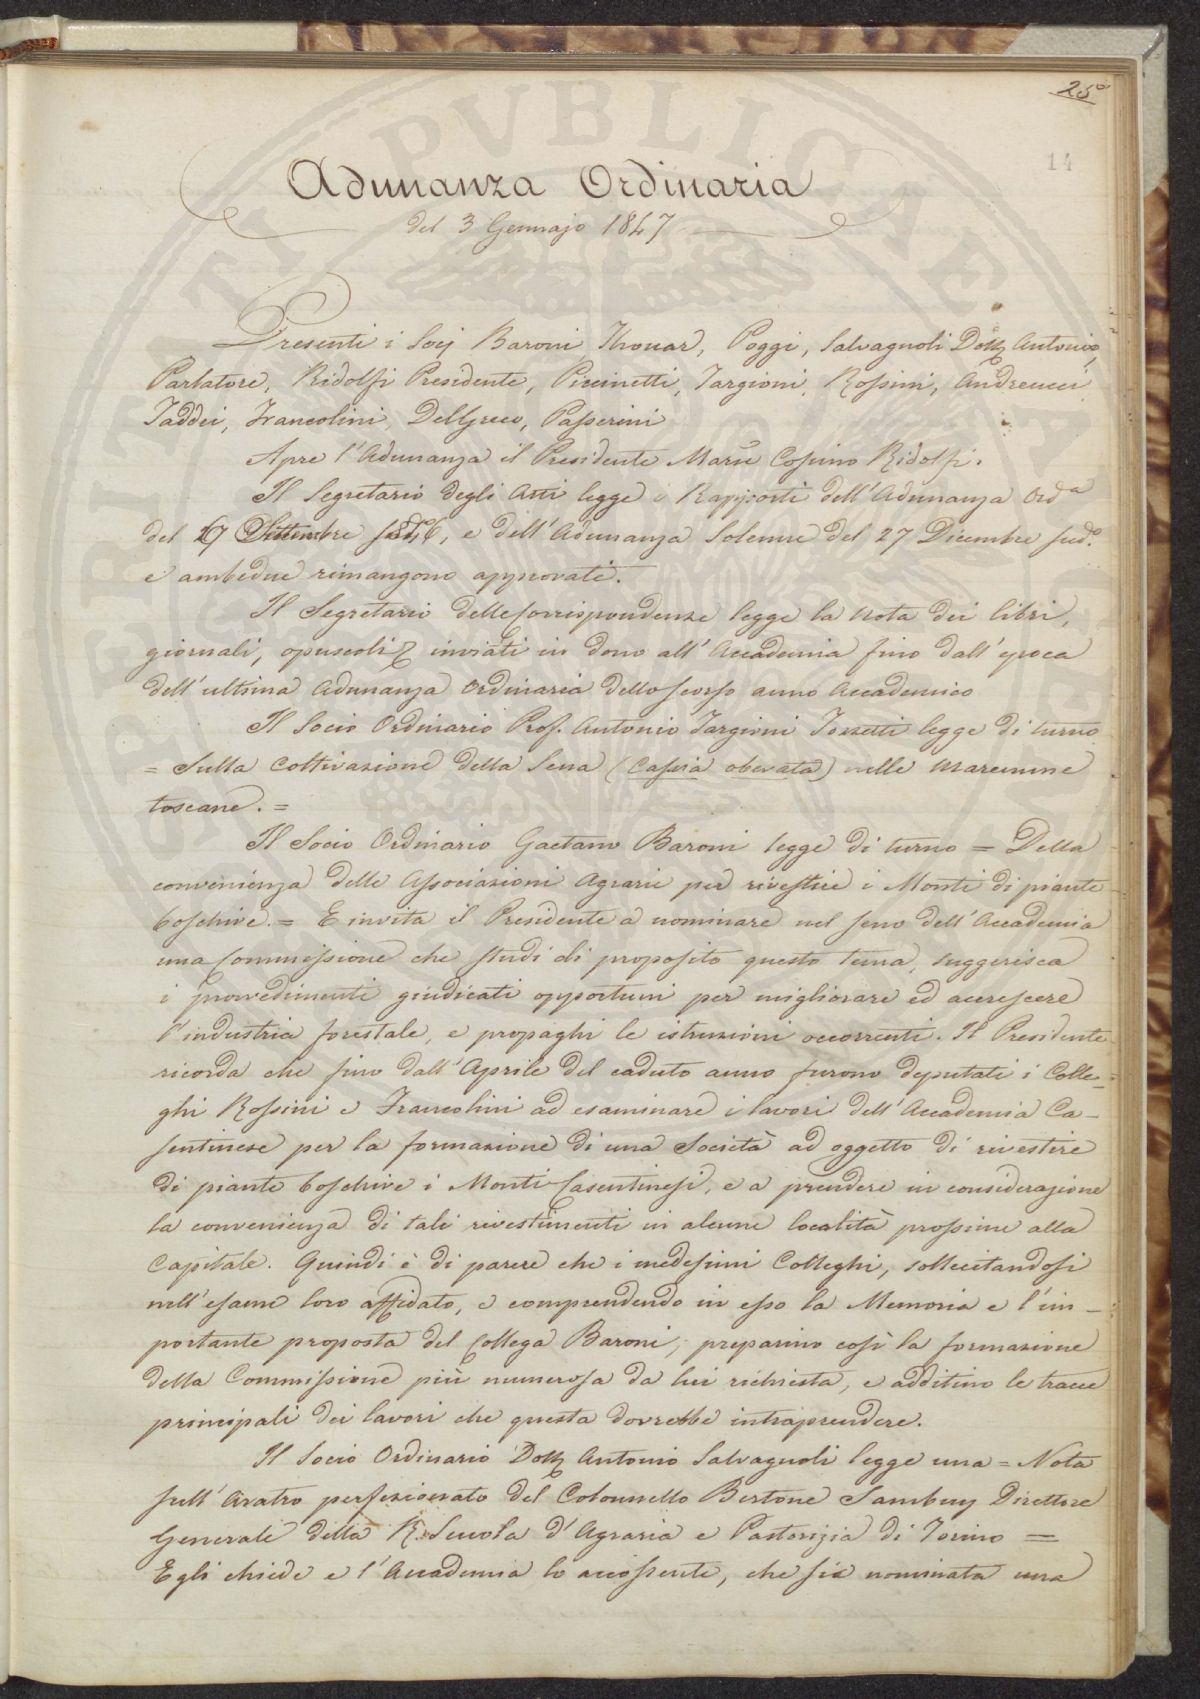 25º
14
Adunanza Ordinaria
del 3 Gennajo 1847
Presenti i Socj Baroni, Thouar, Poggi, Salvagnoli Dott. Antonio,
Parlatore, Ridolfi Presidente, Piccinetti, Targioni, Rossini, Andreucci
Taddei, Francolini, Del Greco, Passerini
Apre l'Adunanza il Presidente March. Cosimo Ridolfi.
Il Segretario degli Atti legge i Rapporti dell'Adunanza Ord.a
del Settembre 1846, e dell'Adunanza Solenne del 27 Dicembre sud.º
e ambedue rimangono approvati.
Il Segretario delle Corrispondenze legge la nota dei libri,
giornali, opuscoli inviati in dono all'Accademia fino dall'epoca
dell'ultima Adunanza Ordinaria dello scorso anno Accademico
Il Socio Ordinario Prof. Antonio Targioni Tozzetti legge di turno
= Sulla Coltivazione della Sena (Cassia obovata) nelle Maremme
toscane. =
Il Socio Ordinario Gaetano Baroni legge di turno = Della
convenienza delle Associazioni Agrarie per rivestire i Monti di piante
boschive. = E invita il Presidente a nominare nel seno dell'Accademia
una Commissione che studi di proposito questo tema, suggerisca
i provvedimenti giudicati opportuni per migliorare ed accrescere
l'industria forestale, e propaghi le istruzioni occorrenti. Il Presidente
ricorda che fino dall'Aprile del caduto anno furono deputati i Colle-
ghi Rossini e Francolini ad esaminare i lavori dell'Accademia Ca-
sentinese per la formazione di una Società ad oggetto di rivestire
di piante boschive i Monti Casentinesi, e a prendere in considerazione
la convenienza di tali rivestimenti in alcune località prossime alla
Capitale. Quindi è di parere che i medesimi Colleghi, sollecitandosi
nell'esame loro affidato, e comprendendo in esso la Memoria e l'im-
portante proposta del Collega Baroni, preparino così la formazione
della Commissione più numerosa da lui richiesta, e additino le tracce
principali dei lavori che questa dovrebbe intraprendere.
Il Socio Ordinario Dott. Antonio Salvagnoli legge una = Nota
sull'Aratro perfezionato del Colonnello Bertone Sambuy Direttore
Generale della R. Scuola d'Agraria e Pastorizia di Torino =
Egli chiede e l'Accademia lo acconsente, che sia nominata una